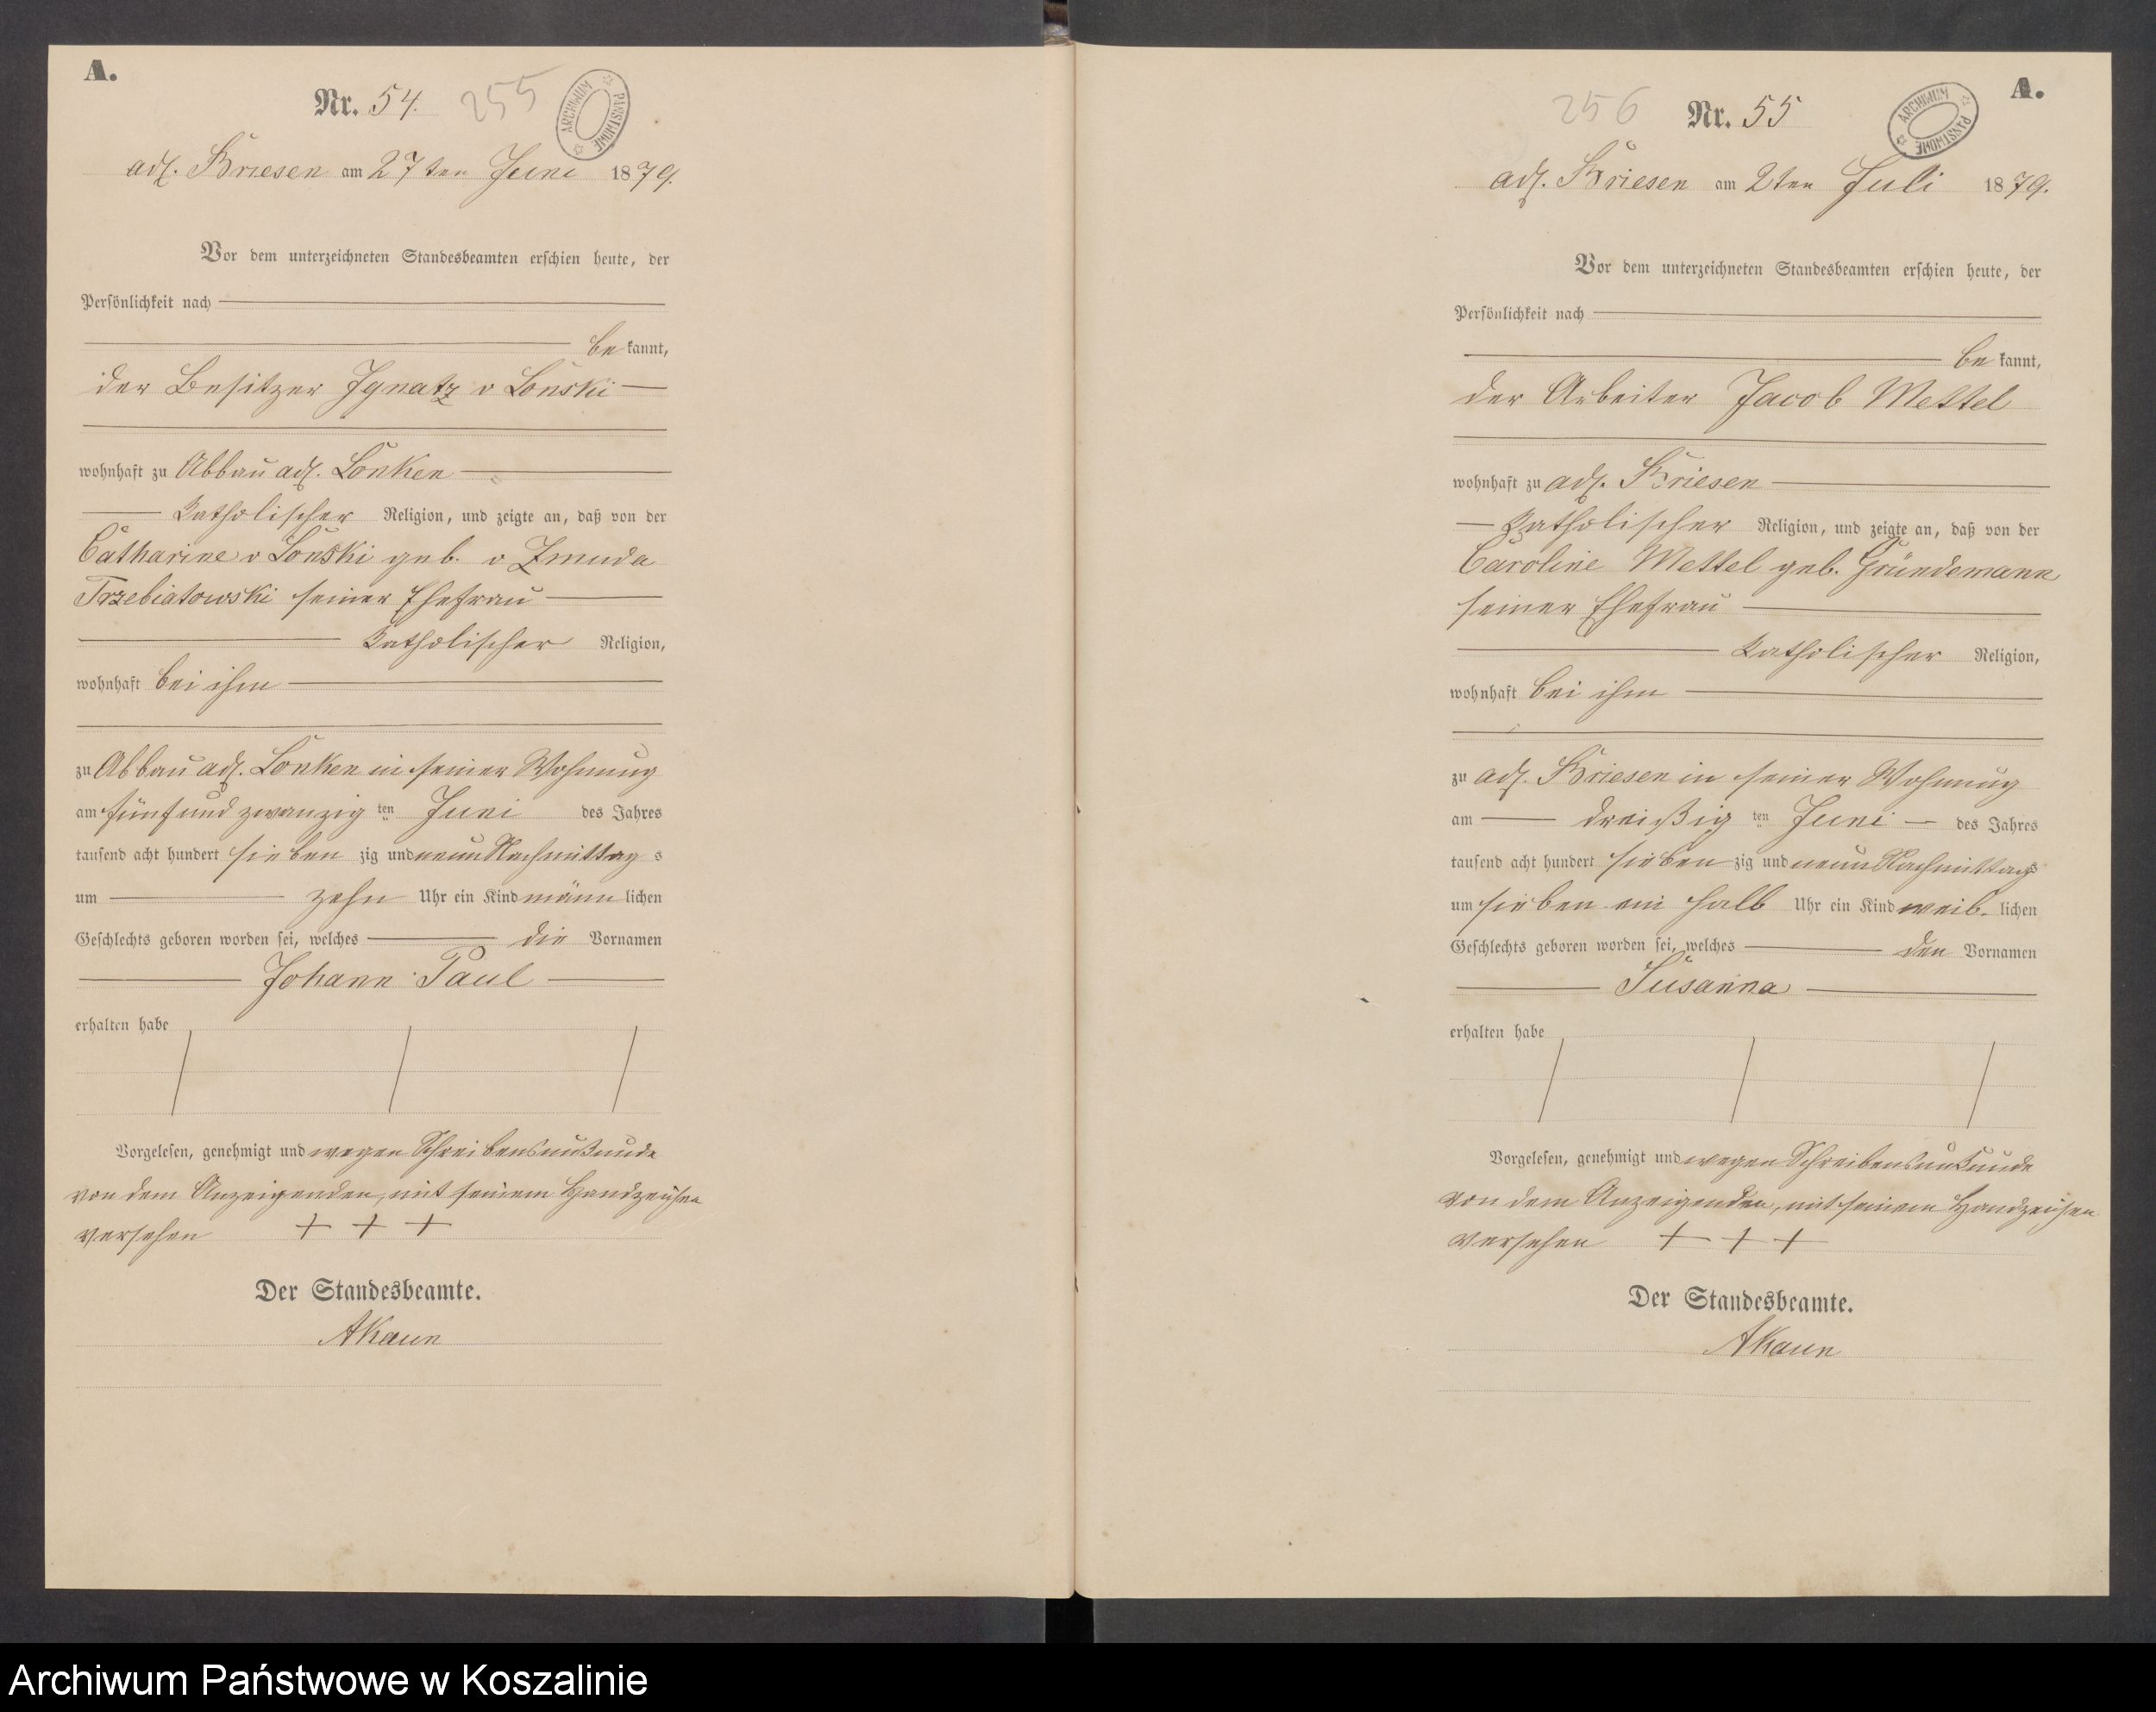 A.
Nr. 54. 255
ARCHIWUM PAŃSTWOWE
adl. Briesen am 27ten Juni 1879.
Vor dem unterzeichneten Standesbeamten erschien heute, der
Persönlichkeit nach
be kannt,
der Besitzer Ignatz v Lonski
wohnhaft zu Abbau adl. Lonken
katholischer Religion, und zeigte an, daß von der
Catharine v Lonski geb. v Zmuda
Trzebiatowski seiner Ehefrau
katholischer Religion,
wohnhaft bei ihm
zu Abbau adl. Lonken in seiner Wohnung
am fünf und zwanzig ten Juni des Jahres
tausend acht hundert sieben zig und neun Nachmittag s
um zehn Uhr ein Kind männ lichen
Geschlechts geboren worden sei, welches die Vornamen
Johann Paul
erhalten habe
Vorgelesen, genehmigt und wegen Schreibensunkunde
von dem Anzeigenden, mit seinem Handzeichen
versehen + + +
Der Standesbeamte.
AKaun
A.
256 Nr. 55
ARCHIWUM PAŃSTWOWE
adl. Briesen am 2ten Juli 1879.
Vor dem unterzeichneten Standesbeamten erschien heute, der
Persönlichkeit nach
be kannt,
der Arbeiter Jacob Mettel
wohnhaft zu adl. Briesen
katholischer Religion, und zeigte an, daß von der
Caroline Mettel geb. Gründemann
seiner Ehefrau
katholischer Religion,
wohnhaft bei ihm
zu adl. Briesen in seiner Wohnung
am dreißig ten Juni des Jahres
tausend acht hundert sieben zig und neun Nachmittags
um sieben ein halb Uhr ein Kind weib. lichen
Geschlechts geboren worden sei, welches den Vornamen
Susanna
erhalten habe
Vorgelesen, genehmigt und wegen Schreibensunkunde
von dem Anzeigenden, mit seinem Handzeichen
versehen + + +
Der Standesbeamte.
AKaun
Archiwum Państwowe w Koszalinie